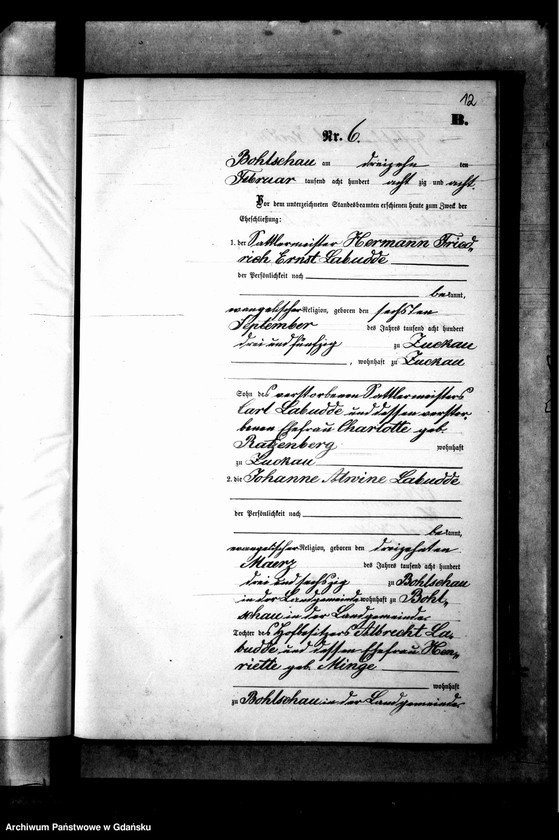 12
B.
Nr. 6.
Bohlschau am dreizehn ten
Februar tausend acht hundert acht zig und acht.
Vor dem unterzeichneten Standesbeamten erschienen heute zum Zweck der
Eheschließung:
1. der Sattlermeister Hermann Fried-
rich Ernst Labudde
der Persönlichkeit nach
be kannt,
evangelischer Religion, geboren den sechsten
September des Jahres tausend acht hundert
drei und fünfzig zu Zuckau
, wohnhaft zu Zuckau
Sohn des verstorbenen Sattlermeisters
Carl Labudde und dessen verstor-
benen Ehefrau Charlotte geb.
Ratzenberg wohnhaft
zu Zuckau
2. die Johanne Alwine Labudde
der Persönlichkeit nach
be kannt,
evangelischer Religion, geboren den dreizehnten
Maerz des Jahres tausend acht hundert
drei und sechszig zu Bohlschau
in der Landgemeinde wohnhaft zu Bohl-
schau in der Landgemeinde
Tochter des Hofbesitzers Albrecht La-
budde und dessen Ehefrau Hen-
riette geb. Minge
wohnhaft
zu Bohlschau in der Landgemeinde
Archiwum Państwowe w Gdańsku